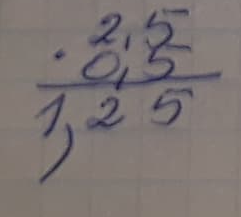 2,5
· 0,5
1,25